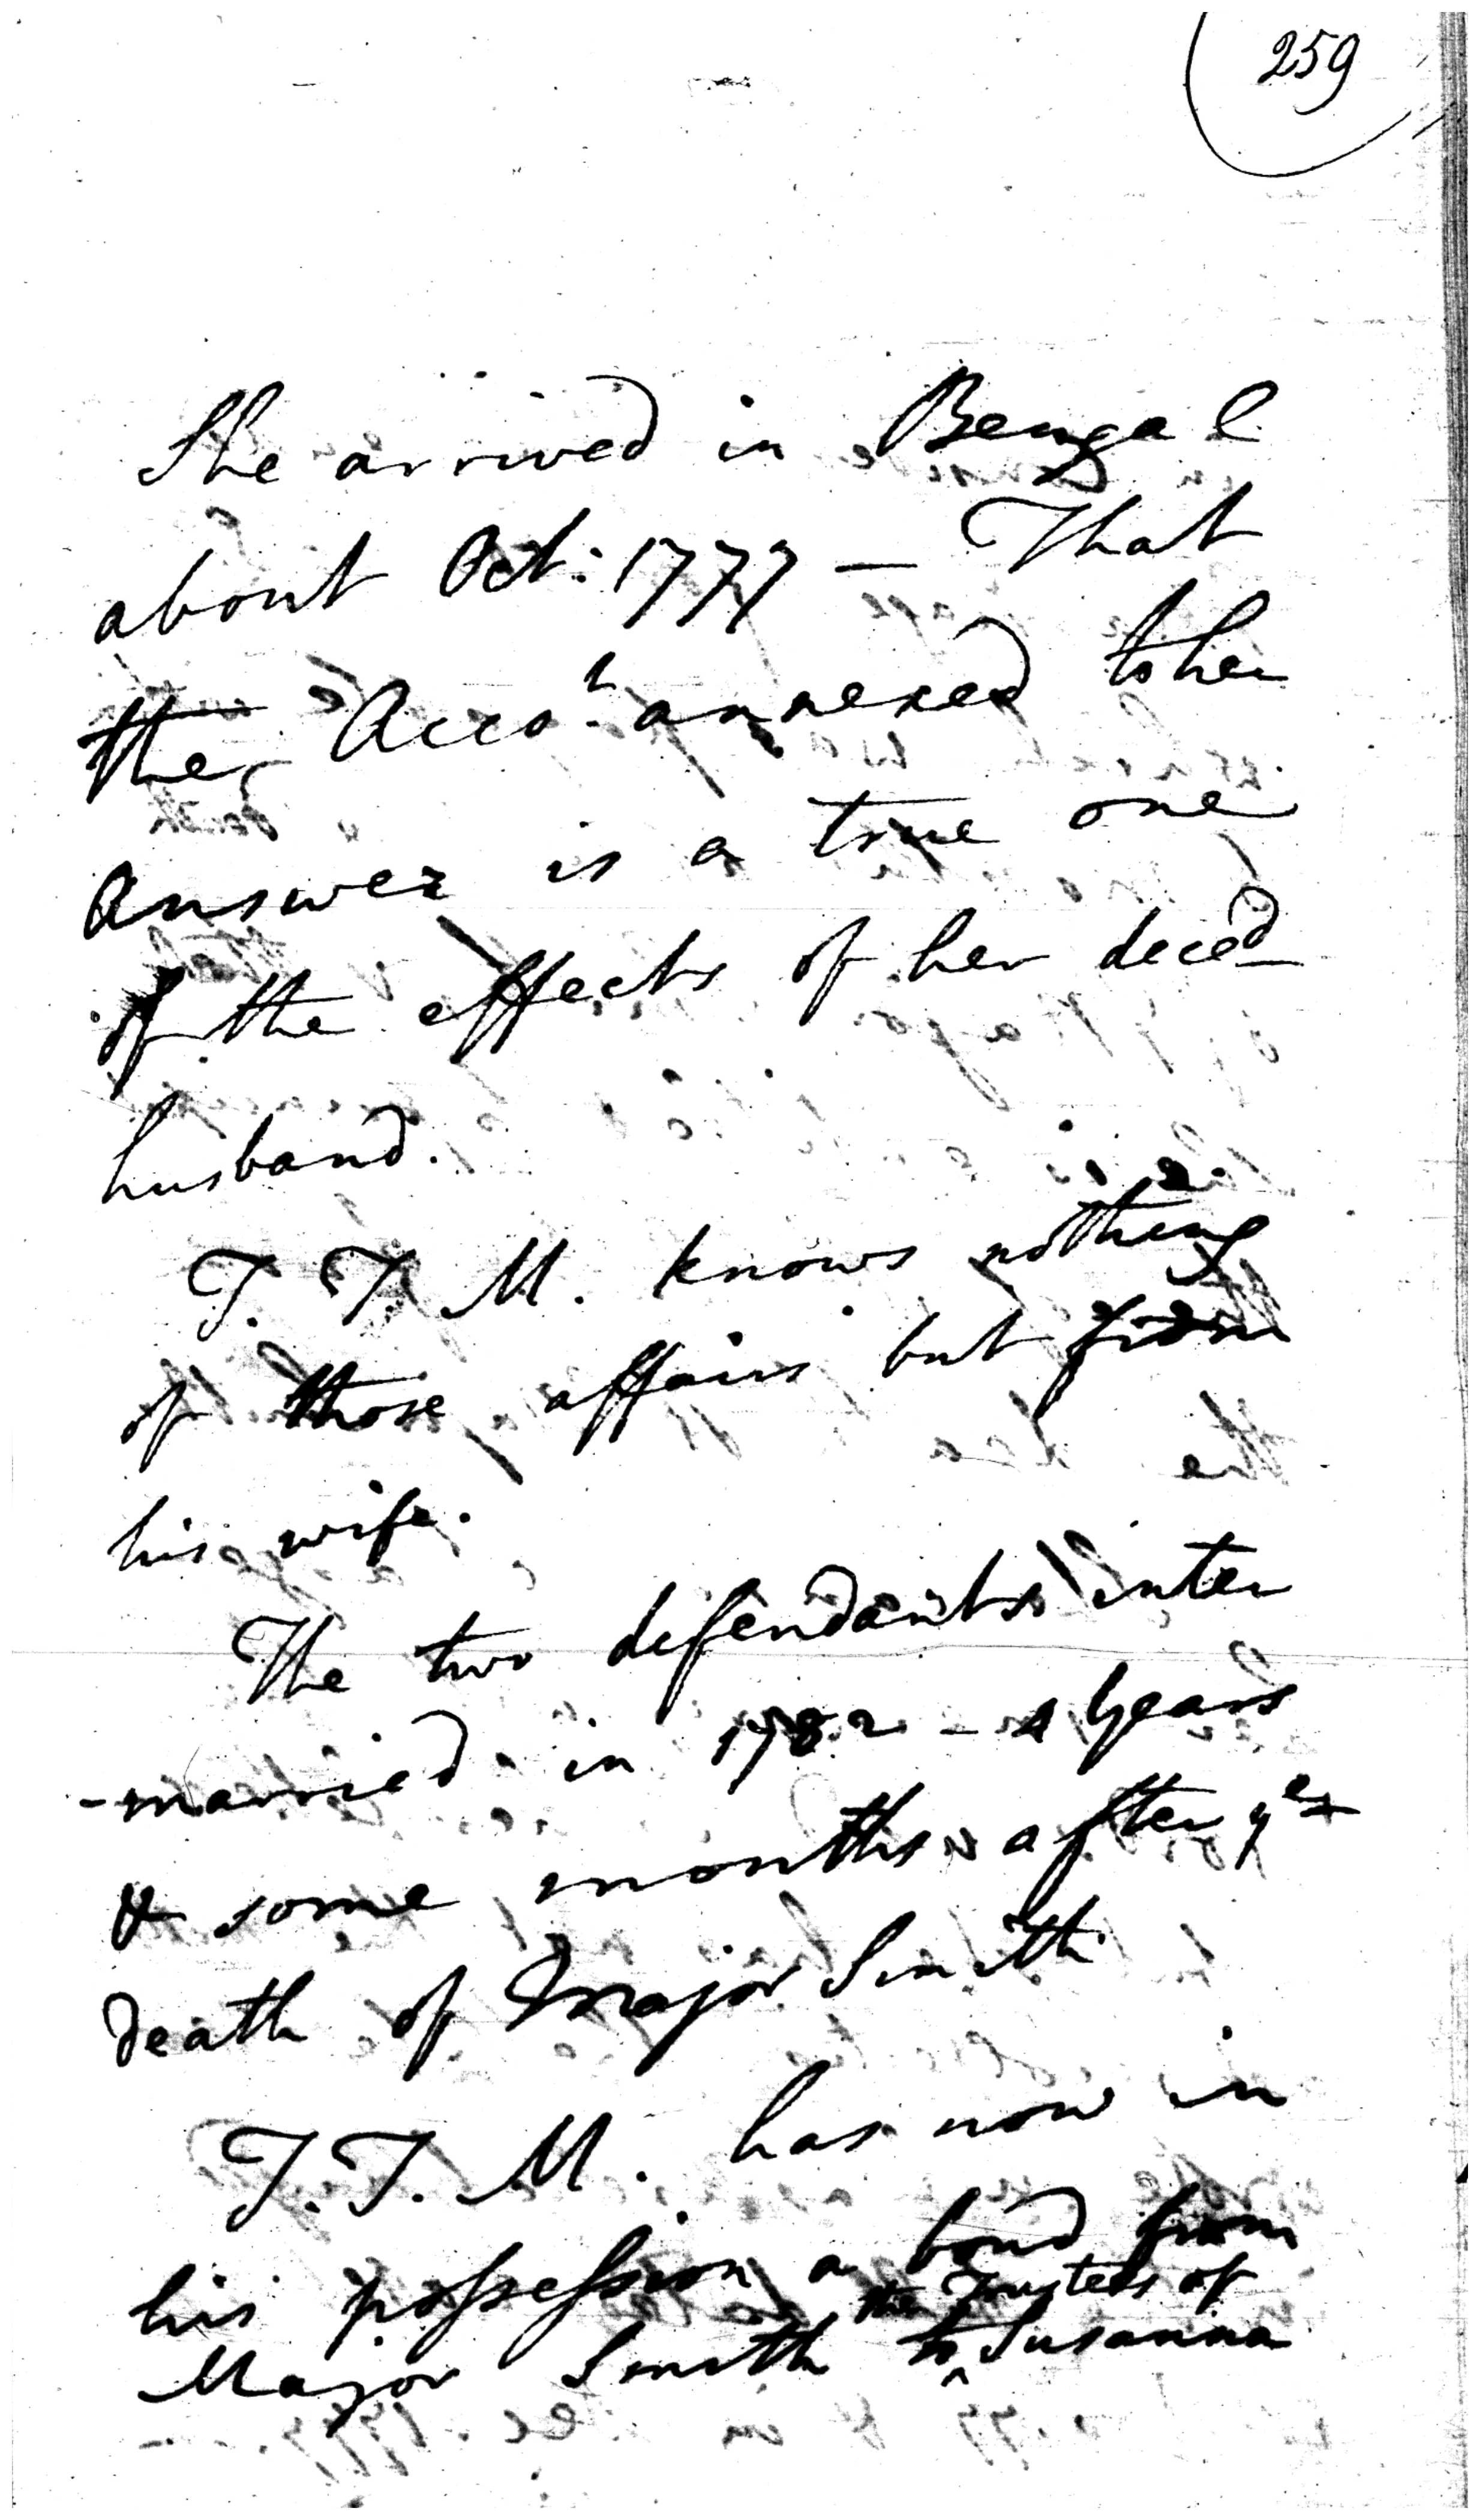 259
She arrived in Bengal
about Oct: 1777 — That
the Acco.t annexed to her
Answer is a true one
of the effects of her deced
husband.
T. T. M. knows nothing
of those affairs but from
his wife.
The two defendants inter
-married in 1782 - Years
& some months after ye
death of Major Smith
T. T. M. has now in
his possession a bond from
the Trustees of
Major Smith to ^ Susanna